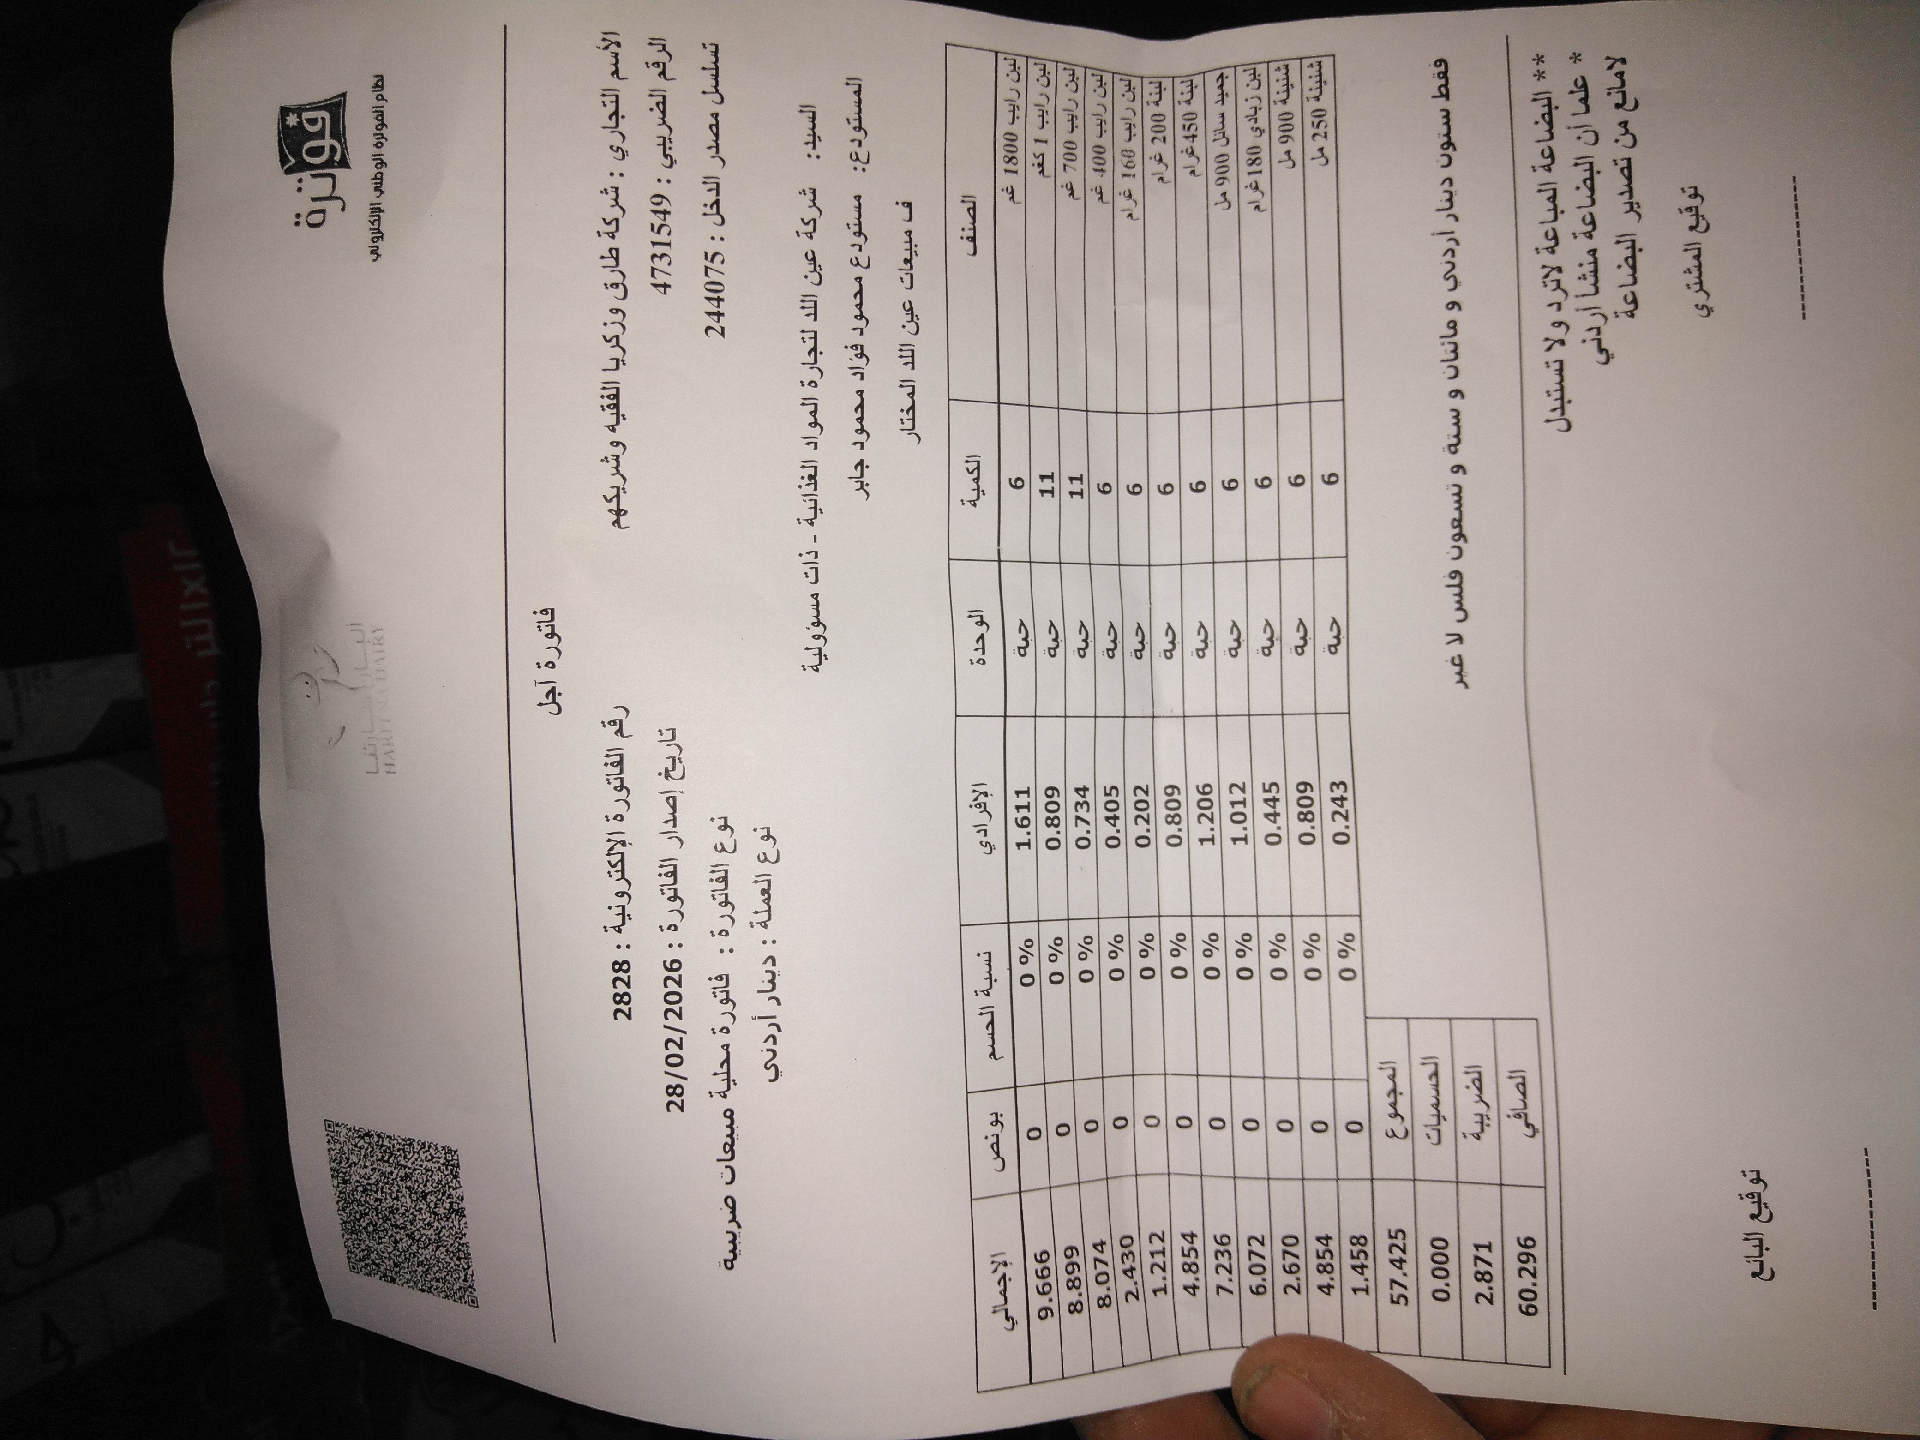 فوترة
نظام الفوترة الوطني الإلكتروني
HARITNA DAIRY
فاتورة آجل
الأسم التجاري : شركة طارق وزكريا الفقيه وشريكهم
رقم الفاتورة الإلكترونية : 2828
الرقم الضريبي : 4731549
تاريخ إصدار الفاتورة : 28/02/2026
تسلسل مصدر الدخل : 244075
نوع الفاتورة : فاتورة محلية مبيعات ضريبية
نوع العملة : دينار أردني
السيد: شركة عين اللد لتجارة المواد الغذائية - ذات مسؤولية
المستودع: مستودع محمود فؤاد محمود جابر
ف مبيعات عين اللد المختار
الصنف الكمية الوحدة الإفرادي نسبة الحسم بونص الإجمالي
لبن رايب 1800 غم 6 حبة 1.611 0 % 0 9.666
لبن رايب 1 كغم 11 حبة 0.809 0 % 0 8.899
لبن رايب 700 غم 11 حبة 0.734 0 % 0 8.074
لبن رايب 400 غم 6 حبة 0.405 0 % 0 2.430
لبن رايب 160 غرام 6 حبة 0.202 0 % 0 1.212
لبنة 200 غرام 6 حبة 0.809 0 % 0 4.854
لبنة 450 غرام 6 حبة 1.206 0 % 0 7.236
جميد سائل 900 مل 6 حبة 1.012 0 % 0 6.072
لبن زبادي 180 غرام 6 حبة 0.445 0 % 0 2.670
شنينة 900 مل 6 حبة 0.809 0 % 0 4.854
شنينة 250 مل 6 حبة 0.243 0 % 0 1.458
المجموع 57.425
الحسميات 0.000
الضريبة 2.871
الصافي 60.296
فقط ستون دينار أردني و مائتان و ستة و تسعون فلس لا غير
** البضاعة المباعة لاترد ولا تستبدل
* علما أن البضاعة منشأ أردني
لامانع من تصدير البضاعة
توقيع المشتري
توقيع البائع